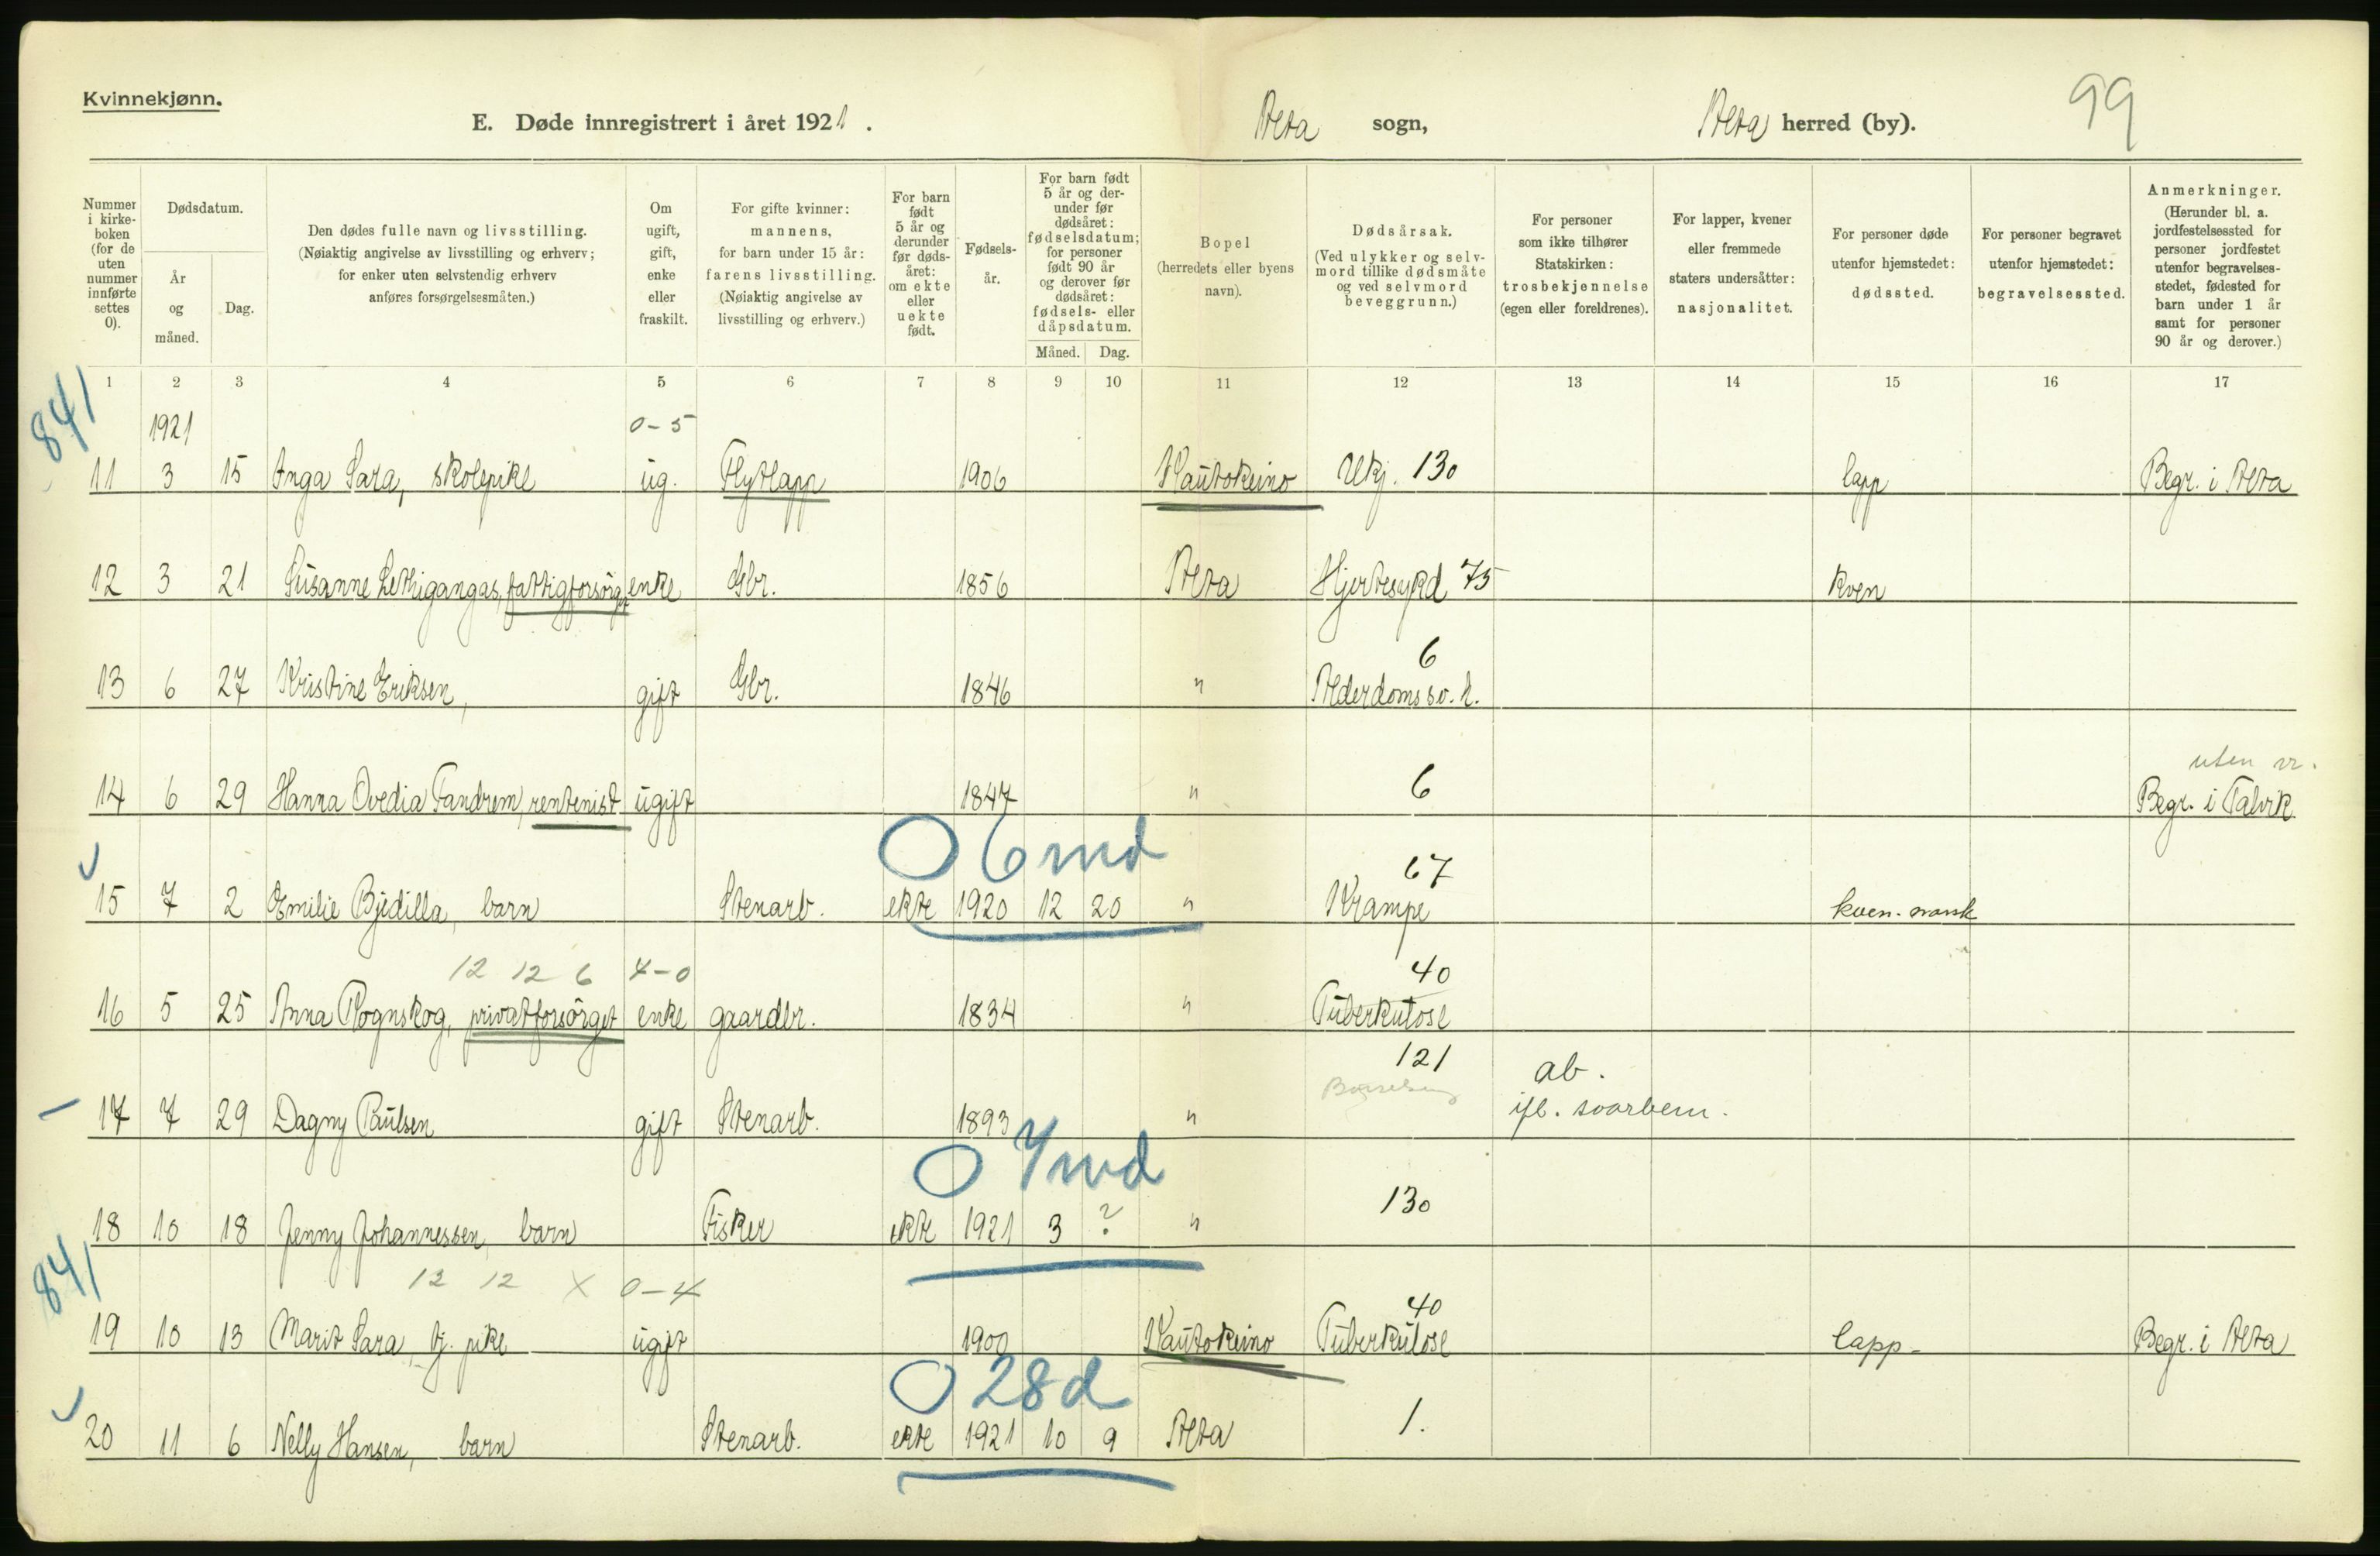 Kvinnekjønn.
E. Døde innregistrert i året 1921.
Alta sogn,
Alta herred (by).
99
Nummer i kirkeboken (for de uten nummer innførte settes 0).
Dødsdatum.
År og måned.
Dag.
Den dødes fulle navn og livsstilling.
(Nøiaktig angivelse av livsstilling og erhverv; for enker uten selvstendig erhverv anføres forsørgelsesmåten.)
Om ugift, gift, enke eller fraskilt.
For gifte kvinner: mannens, for barn under 15 år: farens livsstilling.
(Nøiaktig angivelse av livsstilling og erhverv.)
For barn født 5 år og derunder før dødsåret: om ekte eller uekte født.
Fødselsår.
For barn født 5 år og derunder før dødsåret: fødselsdatum; for personer født 90 år og derover før dødsåret: fødsels- eller dåpsdatum.
Måned. Dag.
Bopel (herredets eller byens navn).
Dødsårsak.
(Ved ulykker og selvmord tillike dødsmåte og ved selvmord beveggrunn.)
For personer som ikke tilhører Statskirken: trosbekjennelse (egen eller foreldrenes).
For lapper, kvener eller fremmede staters undersåtter: nasjonalitet.
For personer døde utenfor hjemstedet: dødssted.
For personer begravet utenfor hjemstedet: begravelsessted.
Anmerkninger.
(Herunder bl. a. jordfestelsessted for personer jordfestet utenfor begravelsesstedet, fødested for barn under 1 år samt for personer 90 år og derover.)
1 2 3 4 5 6 7 8 9 10 11 12 13 14 15 16 17
841
1921 0-5
11 3 15 Inga Sara, skolepike ug. Flytlapp 1906 Kautokeino Ukj. 130 lapp Begr. i Alta
12 3 21 Susanne Lethigangas, fattigforsørget enke Gbr. 1856 Alta Hjertesykd 75 kven
6
13 6 27 Kristine Eriksen, gift Gbr. 1846 " Alderdomssv.h.
uten vr.
14 6 29 Hanna Ovedia Tandrem, rentenist ugift 1847 " 6 Begr. i Talvik
0 6 md
67
15 7 2 Emilie Bjidilla, barn Stenarb. ekte 1920 12 20 " Krampe kven-norsk
12 12 6 4-0 40
16 5 25 Anna Rognskog, privatforsørget enke gaardbr. 1834 " Tuberkulose
121 ab.
17 7 29 Dagny Paulsen gift Stenarb. 1893 " Barselseng
0 7 md
18 10 18 Jenny Johannessen, barn Fisker ekte 1921 3 ? " 130
841
12 12 X 0-4 40
19 10 13 Marit Sara, tj. pike ugift 1900 Kautokeino Tuberkulose lapp- Begr. i Alta
0 28 d
20 11 6 Nelly Hansen, barn Stenarb. ekte 1921 10 9 Alta 1.